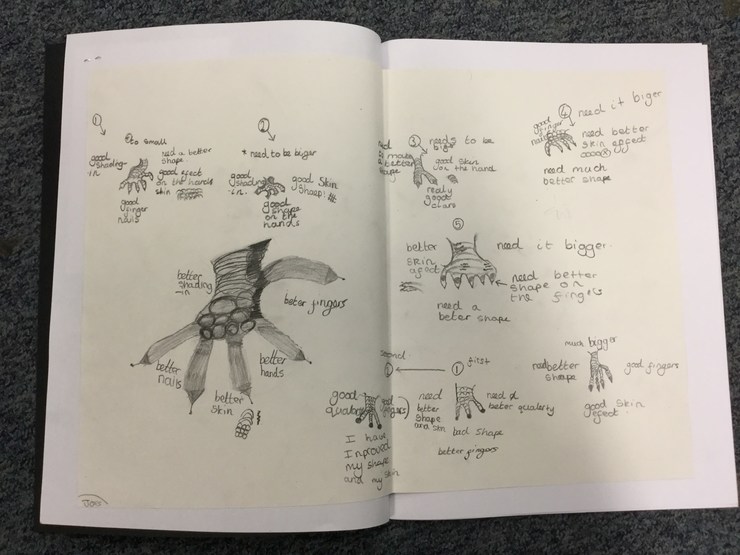 1
to small
good
shading-
in
need a better
shape
good efect
on the hands
skin
good
finger
nails
2
need to be biger
good
shading
-in.
good Skin
Shaep!
good
shape
on the
hands
better
shading
-in
beter fingers
better
nails
better
Skin
better
hands
3
needs to be
big
better
good skin
on the hand
realy
good
claws
4
need it biger
good
finger
nails
need better
skin effect
need much
better shape
5
better
skin
need it bigger.
need better
shape on
the fingers
need a
beter shape
second
1
good
good
I have
Inproved
my shape
and my skin
first
1
need
better
shape
and skin
need a
beter qualerty
bad shape
better fingers
much bigger
need better
shape
good fingers
good skin
efect